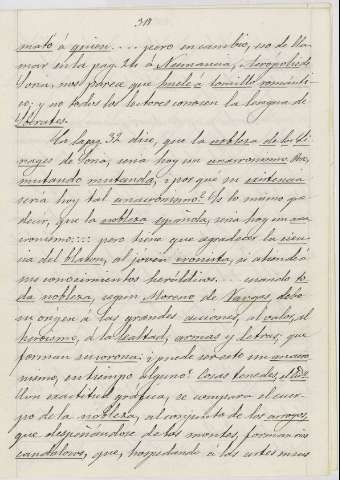 mató á quien.... pero en cambio, eso de lla-
mar en la pag. 26 á Numancia, Acrópolis de
Soria, nos parece que huele á tomillo románti-
co; y no todos los lectores conocen la lengua de
Sócrates.
En la pag. 32 dice, que la nobleza de los Li-
nages de Soria, seria hoy un anacronismo
mutando mutanda, ¿por qué su existencia
seria hoy tal anacronismo? Es lo mismo que
decir, que la nobleza española, sea hoy un ana-
cronismo.... pero tiene que agradecer la cien-
cia del blason, al jóven cronista, si atiende á
sus conocimientos heráldicos.... cuando to-
da nobleza, segun Moreno de Vargas, debe
su orígen á las grandes acciones, al valor, al
heroismo, á la lealtad, armas y letras, que
forman su corona: ¿puede ser esto un anacro-
nismo, en tiempo alguno? Cosas tenedes, el Cid
Con exactitud gráfica, se compara el cuer-
po de la nobleza, al conjunto de los arroyos,
que despeñándose de los montes, forman rios
caudalosos, que, hospedando á los